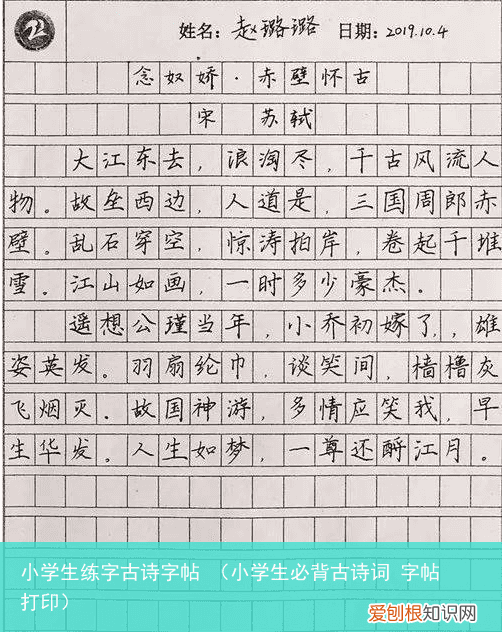 姓名：赵璐璐 日期：2019.10.4
念奴娇·赤壁怀古
宋 苏轼
大江东去，浪淘尽，千古风流人
物。故垒西边，人道是，三国周郎赤
壁。乱石穿空，惊涛拍岸，卷起千堆
雪。江山如画，一时多少豪杰。
遥想公瑾当年，小乔初嫁了，雄
姿英发。羽扇纶巾，谈笑间，樯橹灰
飞烟灭。故国神游，多情应笑我，早
生华发。人生如梦，一尊还酹江月。
小学生练字古诗字帖 （小学生必背古诗词 字帖
打印）
爱刨根知识网